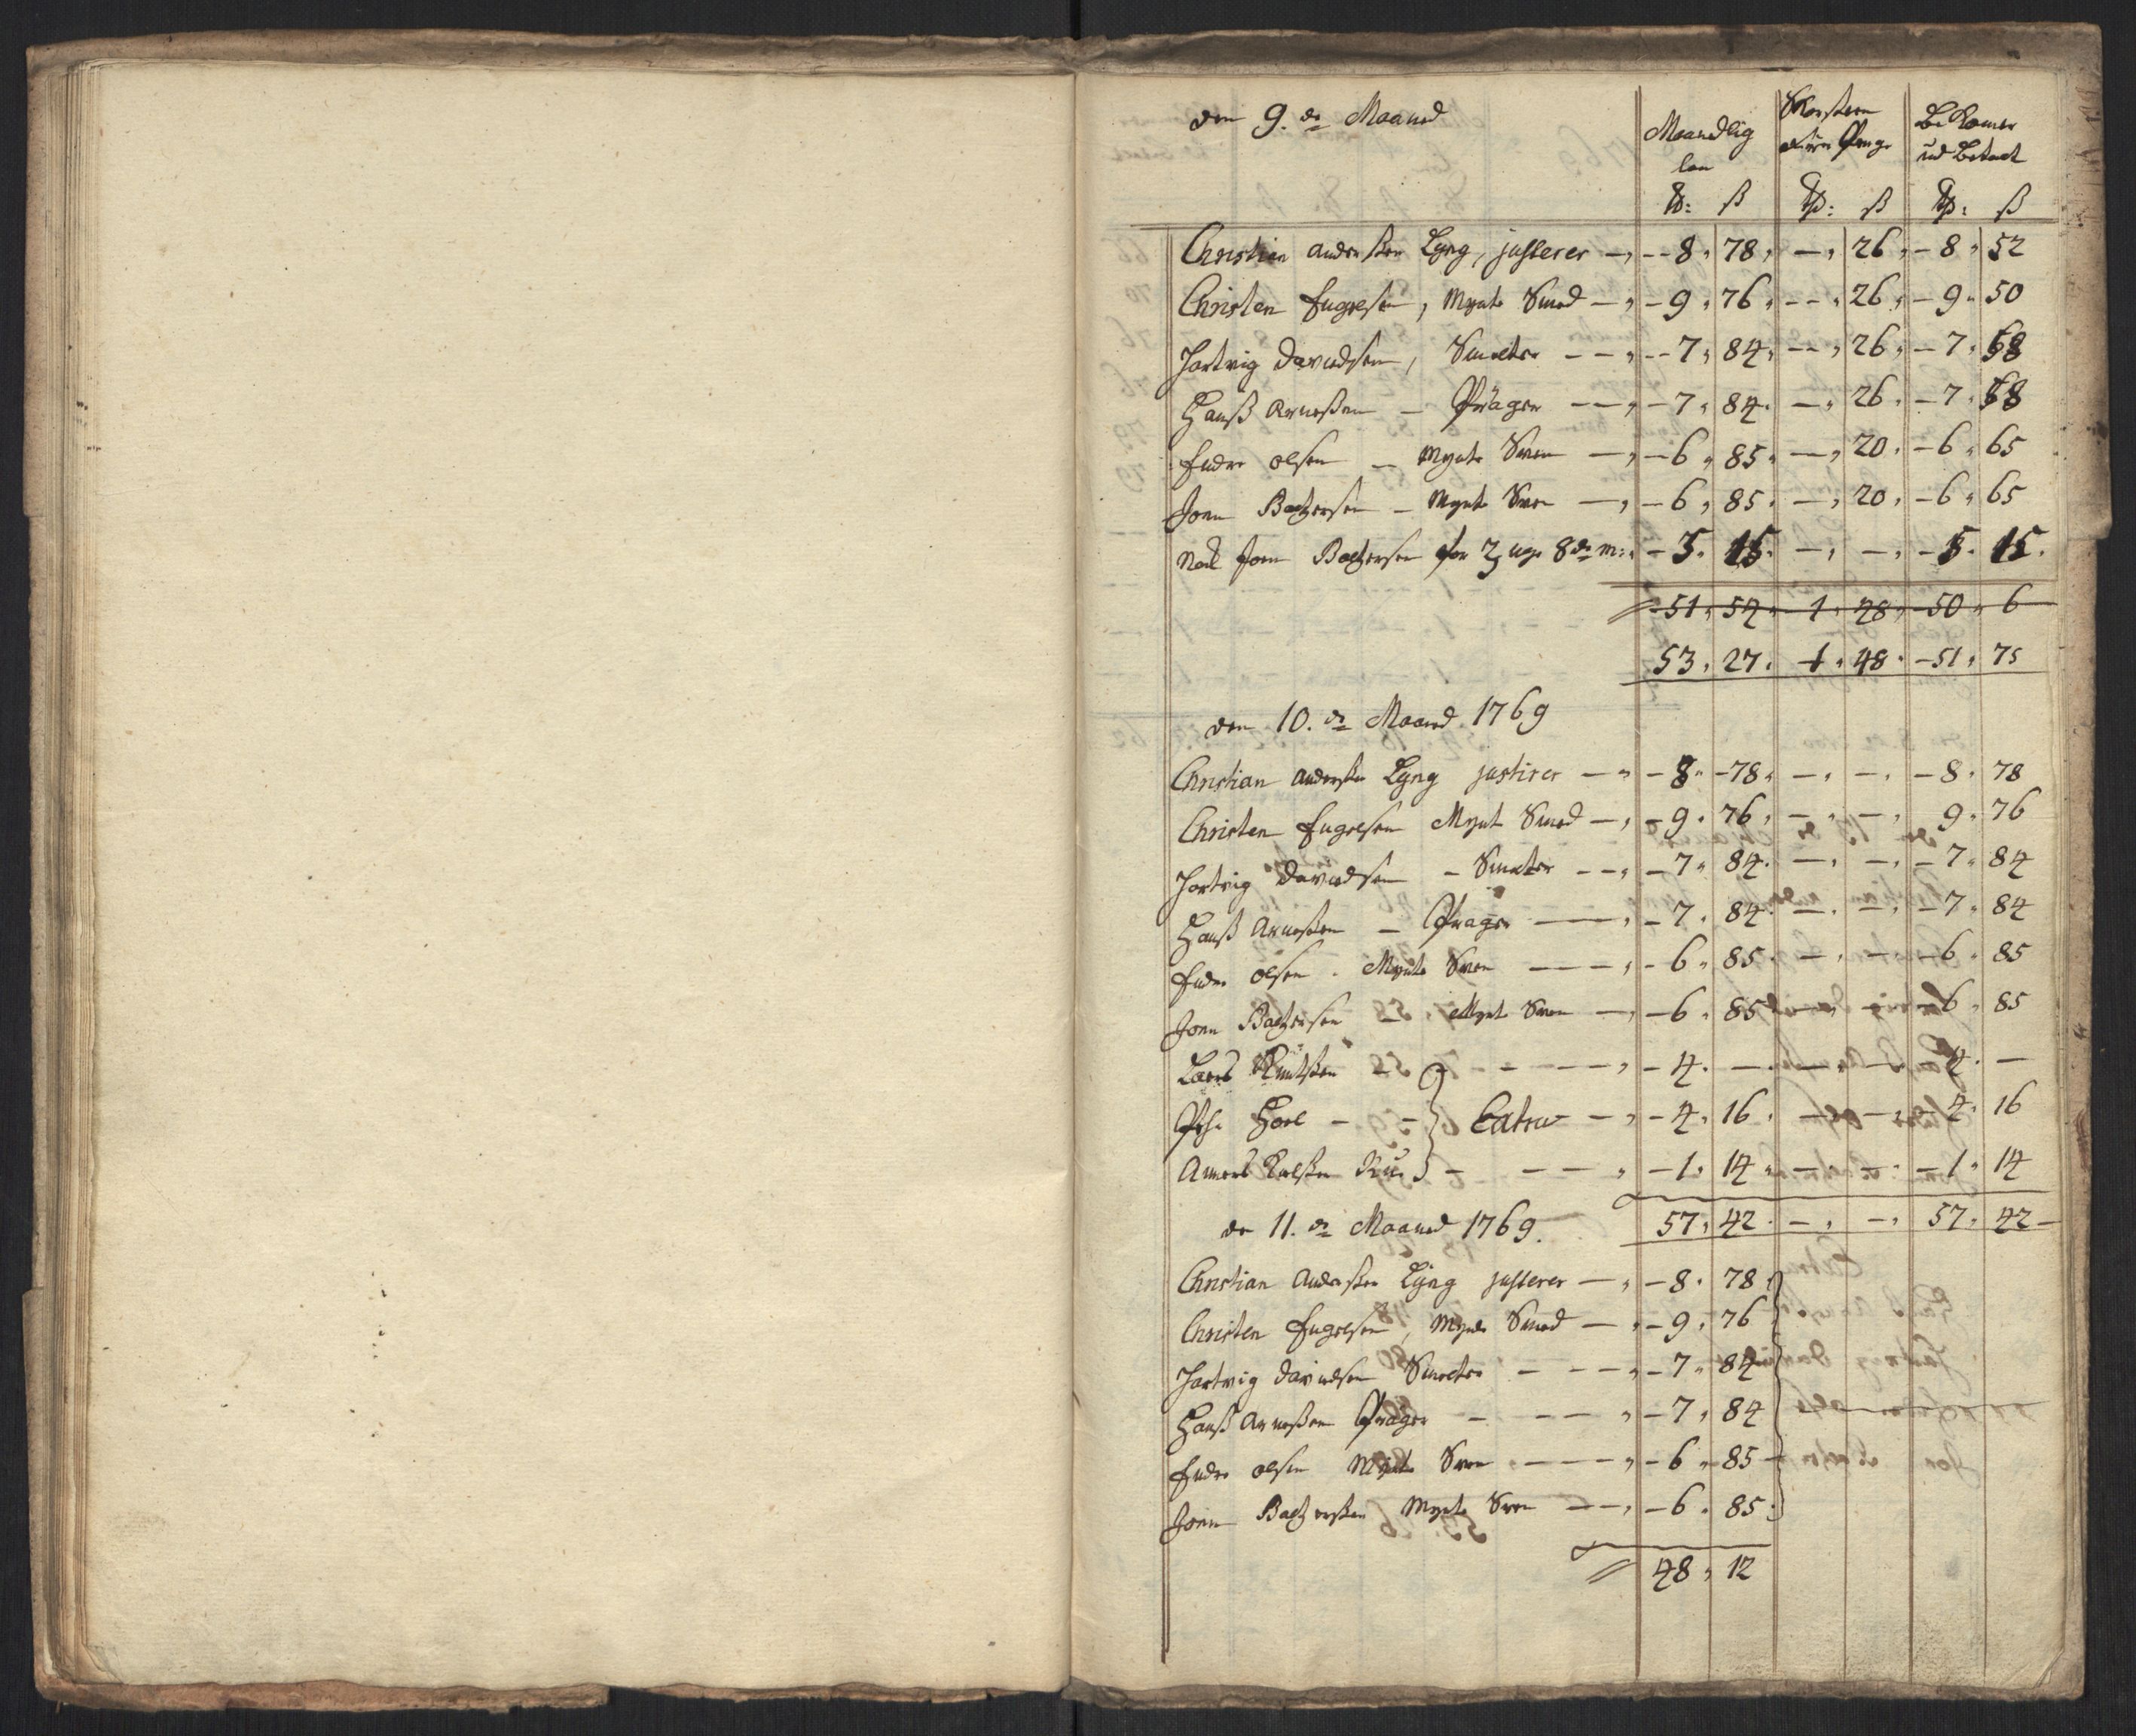 den 9. de Maaned
Maanedlig lön
penge
Bekomer
ud Betalt
ß ß ß
Christian Anderßen Lyng, justerer — 8 " 78 " — " 26 " 8 " 52
Christen Engelsen, Mynte Smed — 9 " 76 " — " 26 " 9 " 50
Hartvig Davidsen, Smelter — 7 " 84 " — " 26 " 7 " 58
Hanß Arneßen — Präger — 7 " 84 " — " 26 " 7 " 58
Endre olsen — Mynte Sven — 6 " 85 " — " 20 " 6 " 65
Joen Baltzersen — Mynte Sven — 6 " 85 " — " 20 " 6 " 65
Joen Baltzersen for 3 uger 8de m: — 5 " 15 " — " — " 5 " 15
51 " 54 " 1 " 48 " 50 " 6
53 " 27 " 1 " 48 " 51 " 75
den 10. de Maaned 1769
Christian Anderßen Lyng justirer — 8 " 78 " — " — " 8 " 78
Christen Engelsen Mynt Smed — 9 " 76 " — " — " 9 " 76
Hartvig Davidsen — Smelter — 7 " 84 " — " — " 7 " 84
Hanß Arneßen — Präger — 7 " 84 " — " — " 7 " 84
Endre olsen . Mynte Sven — 6 " 85 " — " — " 6 " 85
Joen Baltzersen — Mynt Sven — 6 " 85 " — " — " 6 " 85
Lars Knutßen — 4 " — " — " — " 4 " —
— Extra — 4 " 16 " — " — " 4 " 16
— 1 " 14 " — " — " 1 " 14
57 " 42 " — " — " 57 " 42
de 11. de Maaned 1769.
Christian Anderßen Lyng justerer — 8 " 78
Christen Engelsen, Mynte Smed — 9 " 76
Hartvig Davidsen Smelter — 7 " 84
Hanß Arneßen Präger — 7 " 84
Endre olsen Mynte Sven — 6 " 85
Joen Baltzerßen Mynte Sven — 6 " 85
48 " 12